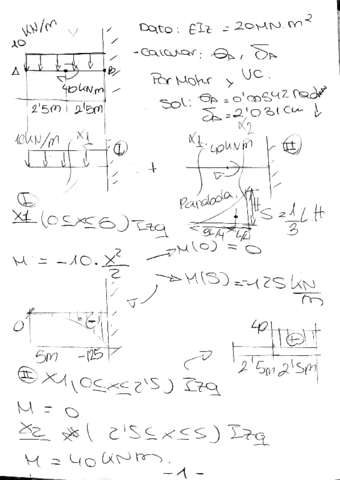 KN/m
10
A
B
40KNm
2'5m 2'5m
Dato: EIz = 20MN.m²
- Calcular: θA, δA
Por Mohr y UC.
Sol: θA = 0'00542 rad
δA = 2'031cm ↓
10KN/m x1 I
+
x1 x2 II
40KNm
Parábola
3L/4 L/4
S = 1/3 LH
I
x1 (0≤x≤5) Izq
M = -10 · x²/2 → M(0) = 0
→ M(5) = -125 KN/m
0 (-)
5m -125
40 (+)
2'5m 2'5m
II x1 (0≤x≤2'5) Izq
M = 0
x2 (2'5≤x≤5) Izq
M = 40KNm.
-1-